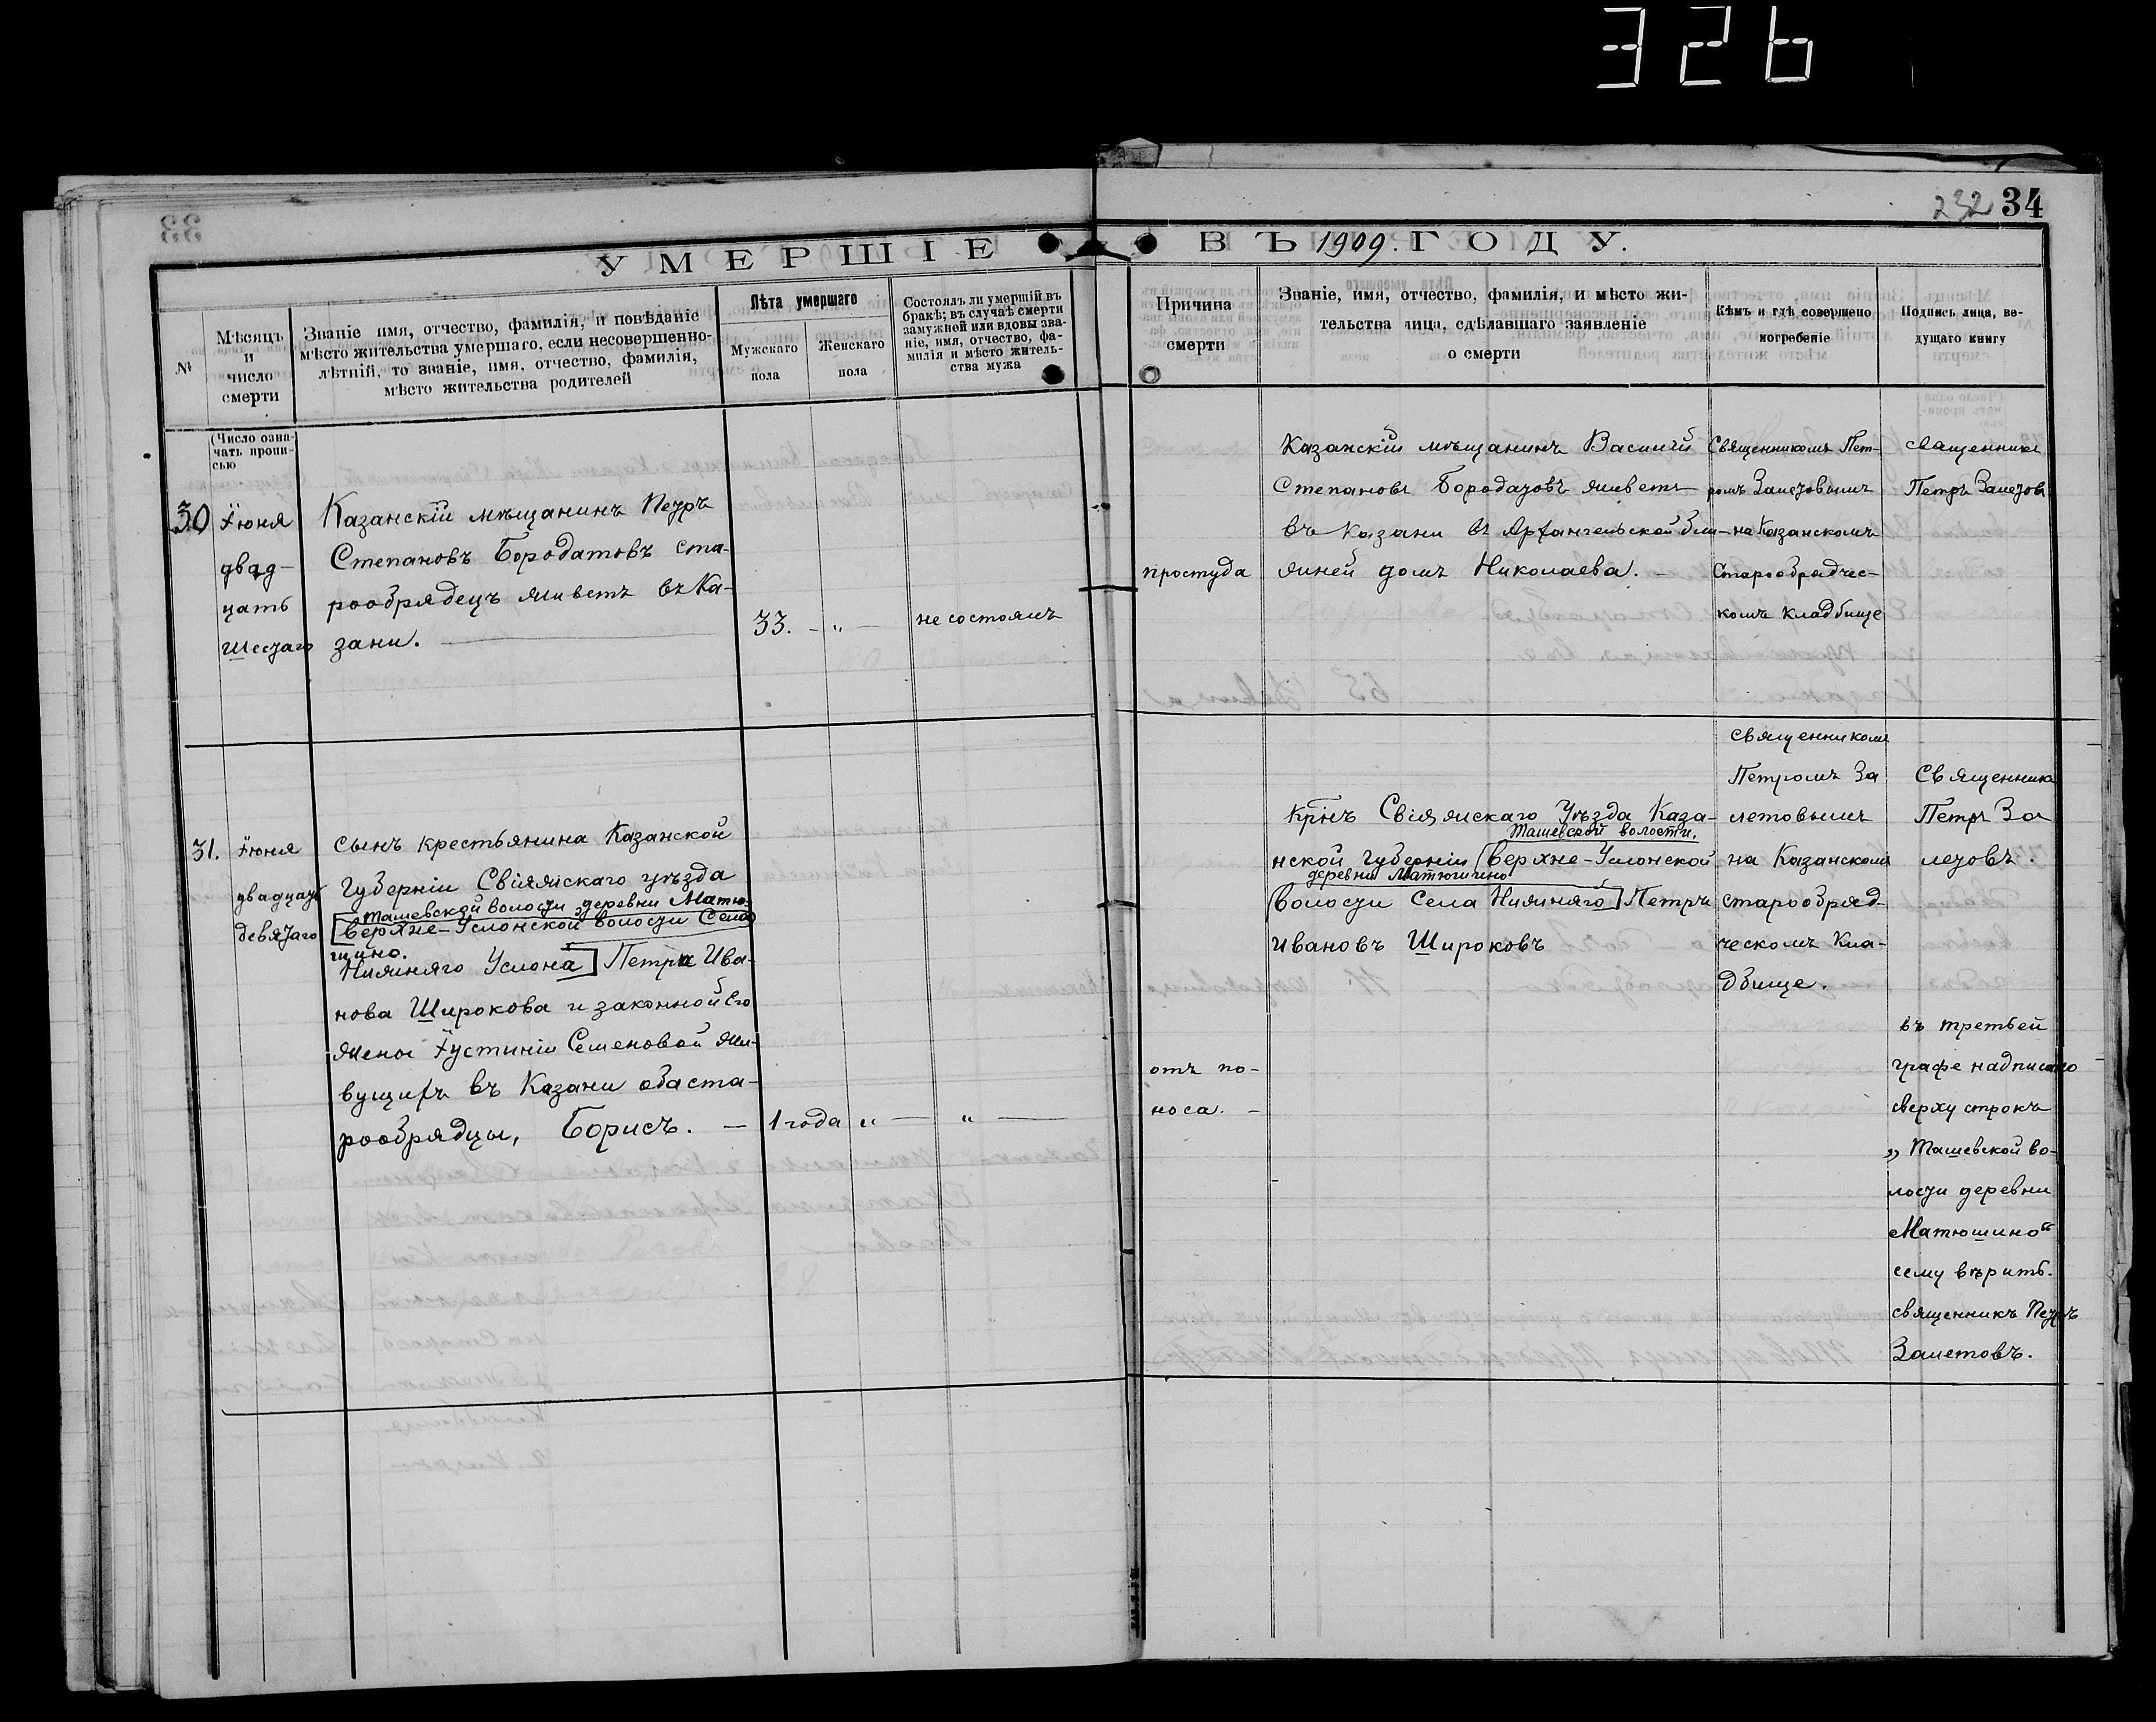 326
232 34
УМЕРШІЕ ВЪ 1909. ГОДУ.
№
Мѣсяцъ
и
число
смерти
Званіе имя, отчество, фамилія, и повѣданіе
мѣсто жительства умершаго, если несовершенно-
лѣтній, то званіе, имя, отчество, фамилія,
мѣсто жительства родителей
Лѣта умершаго
Мужскаго
пола
Женскаго
пола
Состоялъ ли умершій въ
бракѣ; въ случаѣ смерти
замужней или вдовы зва-
ніе, имя, отчество, фа-
милія и мѣсто житель-
ства мужа
Причина
смерти
Званіе, имя, отчество, фамилія, и мѣсто жи-
тельства лица, сдѣлавшаго заявленіе
о смерти
Кѣмъ и гдѣ совершено
погребеніе
Подпись лица, ве-
дущаго книгу
(Число озна-
чать пропи-
сью
30
Їюня
двад-
цать
шестаго
Казанскій мѣщанинъ Петръ
Степановъ Бородатовъ ста-
рообрядецъ живетъ въ Ка-
зани.
33. — „ —
не состоялъ
простуда
Казанскій мѣщанинъ Василій
Степановъ Бородатовъ живетъ
въ Казани въ Архангельской бли-
жней домъ Николаева. —
Священникомъ Пет-
ромъ Залетовымъ
на Казанскомъ
Старообрядчес-
комъ кладбище
священникъ
Петръ Залетовъ
31.
Їюня
двадцать
девятаго
сынъ крестьянина Казанской
Губерніи Свіяжскаго уѣзда
Ташевской волости деревни Матю-
[верхне-Услонской волости Села
шино.
Нижняго Услона] Петра Ива-
нова Широкова и законной его
жены Їустиніи Семеновой жи-
вущихъ въ Казани оба ста-
рообрядцы, Борисъ. —
1 года „ — „ —
отъ по-
носа. —
Крнъ Свіяжскаго Уѣзда Каза-
Ташевской волости.
нской губерніи [верхне-Услонской
деревни Матюшино
волости Села Нижняго] Петръ
Ивановъ Широковъ
священникомъ
Петромъ За
летовымъ
на Казанскомъ
старообряд-
ческомъ кла-
дбище.
Священникъ
Петръ За
летовъ.
въ третьей
графе надписано
сверху строкъ
„Ташевской во-
лости деревни
Матюшино“
сему вѣрить.
священникъ Петръ
Залетовъ.